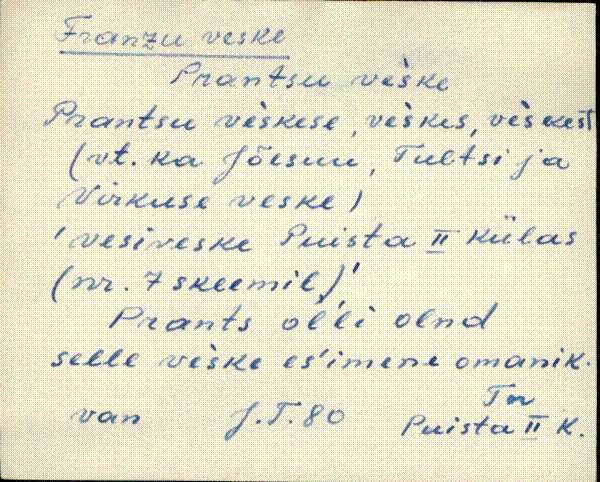 Franzu veske
Prantsu vèške
Prantsu vèškese, vèškes, vèškest
(vt. ka Jõesuu, Tultsi ja
Virkuse veske)
'vesiveske Puista II külas
(nr. 7 skeemil)'
Prants ol'li olnd
selle vèške es'imene omanik.
van J.T. 80 Trv
Puista II K.